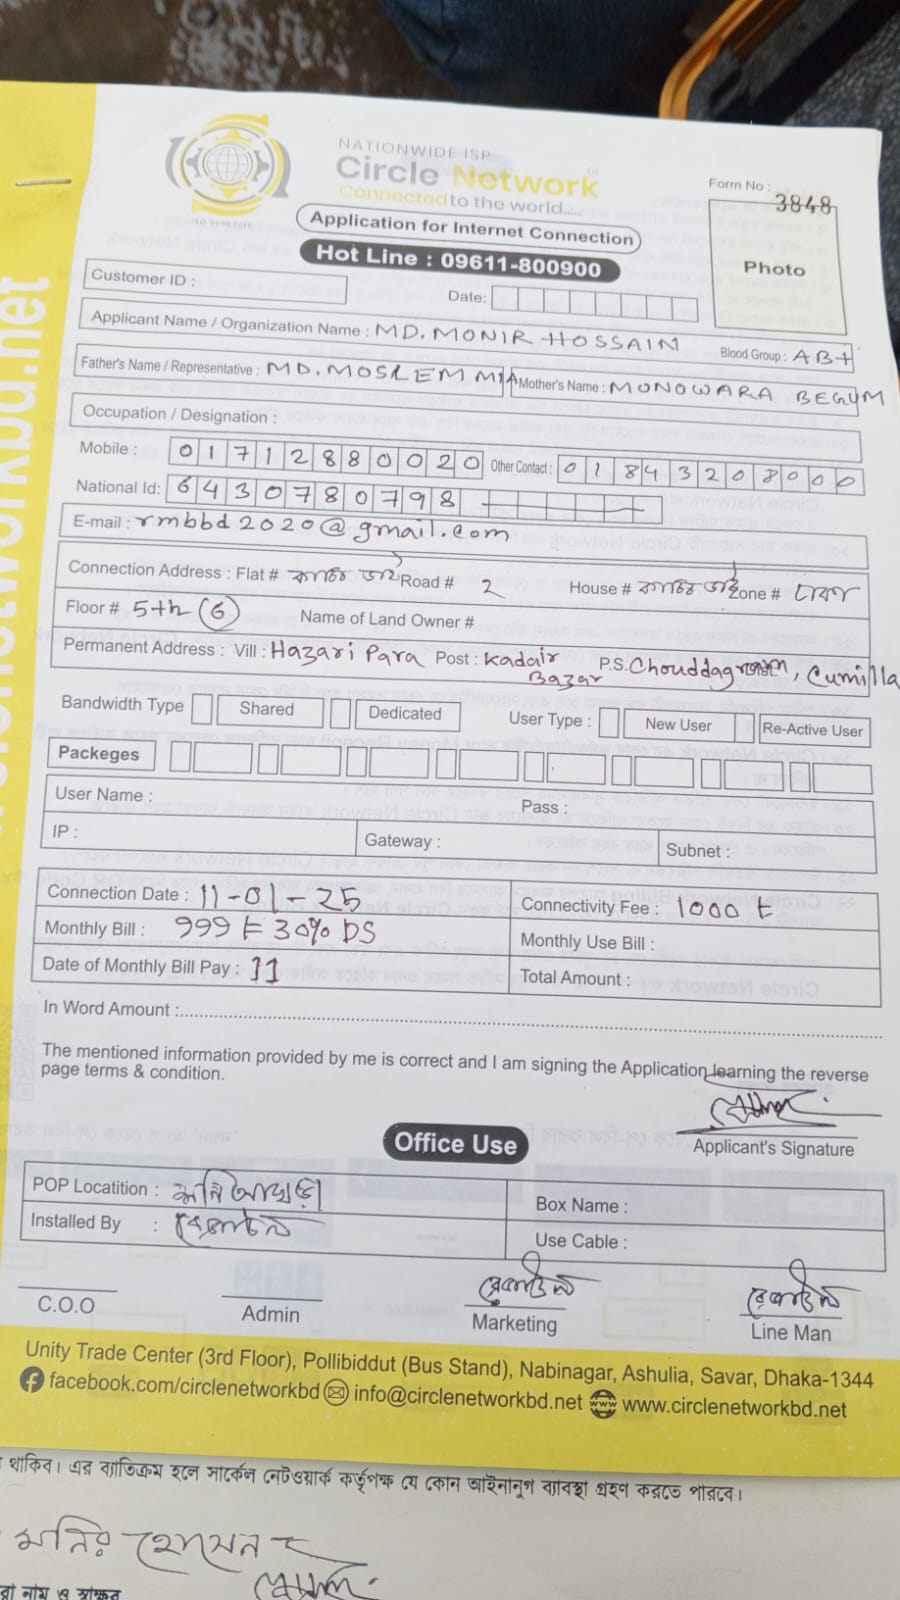 NATIONWIDE ISP
Circle Network
Connected to the world.....
ISO 9001:2015
Application for Internet Connection
Hot Line : 09611-800900
Form No :
3848
Photo
Customer ID :
Date:
Applicant Name / Organization Name : MD. MONIR HOSSAIN Blood Group : AB+
Father's Name / Representative : MD. MOSLEM MIA Mother's Name : MONOWARA BEGUM
Occupation / Designation :
Mobile : 01712880020 Other Contact : 01843208000
National Id: 6430780798
E-mail : rmbbd2020@gmail.com
Connection Address : Flat # Road # 2 House # Zone # ঢাকা
Floor # 5th (6) Name of Land Owner #
Permanent Address : Vill : Hazari Para Post : Kadair Bazar P.S. Chouddagram, Cumilla
Bandwidth Type Shared Dedicated User Type : New User Re-Active User
Packeges
User Name : Pass :
IP : Gateway : Subnet :
Connection Date : 11-01-25 Connectivity Fee : 1000
Monthly Bill : 999 30% DS Monthly Use Bill :
Date of Monthly Bill Pay : 11 Total Amount :
In Word Amount :
The mentioned information provided by me is correct and I am signing the Application learning the reverse
page terms & condition.
Applicant's Signature
Office Use
POP Locatition : Box Name :
Installed By : Use Cable :
C.O.O Admin Marketing Line Man
Unity Trade Center (3rd Floor), Pollibiddut (Bus Stand), Nabinagar, Ashulia, Savar, Dhaka-1344
facebook.com/circlenetworkbd info@circlenetworkbd.net www.circlenetworkbd.net
থাকিব। এর ব্যতিক্রম হলে সার্কেল নেটওয়ার্ক কর্তৃপক্ষ যে কোন আইনানুগ ব্যাবস্থা গ্রহণ করতে পারবে।
মনির হোসেন
নাম ও স্বাক্ষর